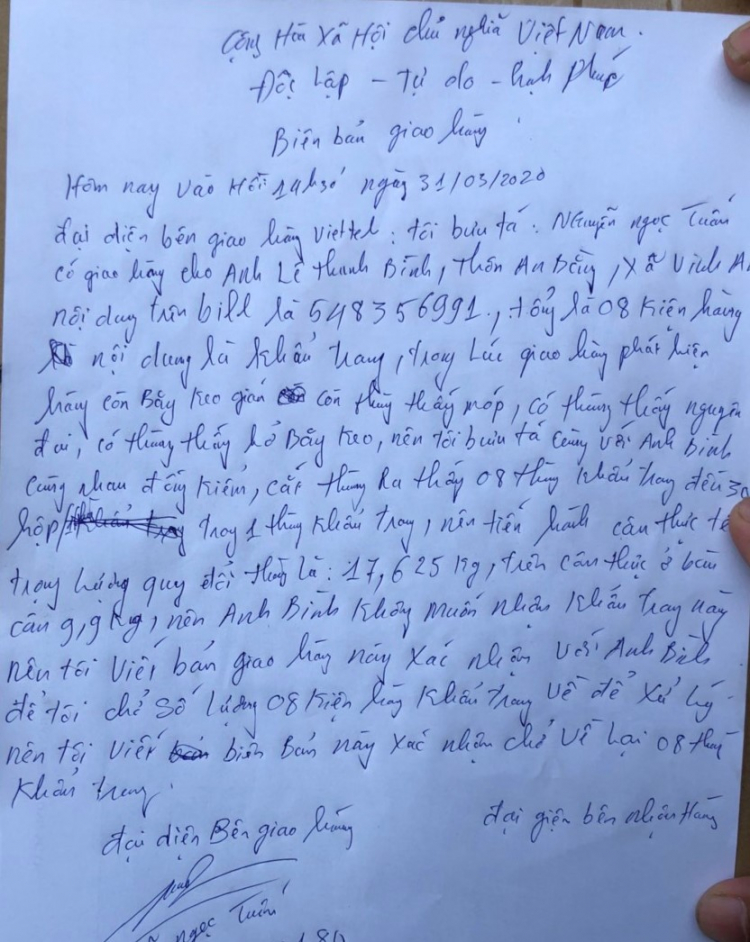 Cộng Hòa Xã Hội chủ nghĩa Việt Nam.
Độc lập - Tự do - hạnh phúc
Biên bản giao hàng
Hôm nay vào Hồi 14h30 ngày 31/03/2020
đại diện bên giao hàng Viettel: tôi bưu tá: Nguyễn ngọc Tuấn
có giao hàng cho Anh Lê Thanh Bình, Thôn An Bằng, Xã Vinh A
nội dung trên bill là 548356991, tổng là 08 Kiện hàng
nội dung là khẩu trang, trong Lúc giao hàng phát hiện
hàng còn Băng keo gián còn thùng thấy móp, có thùng thấy nguyên
đai, có thùng thấy hở Băng keo, nên tôi bưu tá cùng với Anh Bình
cùng nhau đồng kiểm, cắt thùng Ra thấy 08 thùng khẩu trang đều 30
hộp/ trong 1 thùng khẩu trang, nên tiến hành cân thực tế
trọng lượng quy đổi thùng là: 17,625 kg, trên cân thực ở bàn
cân 9,9 kg, nên Anh Bình không muốn nhận khẩu trang này
nên tôi viết bản giao hàng này xác nhận với Anh Bình
để tôi chở số lượng 08 kiện hàng khẩu trang về để xử lý
nên tôi viết biên Bản này xác nhận chở về lại 08 thùng
khẩu trang.
đại diện Bên giao hàng đại giện bên nhận Hàng
ngọc Tuấn